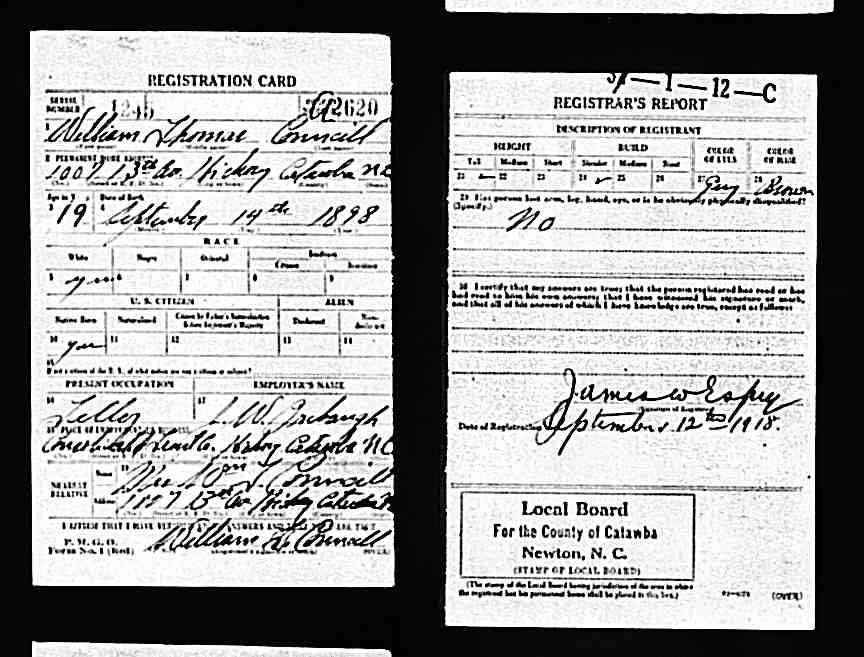 REGISTRATION CARD
SERIAL NUMBER 1245 2620
William Thomas Councill
(First name) (Middle name) (Last name)
2 PERMANENT HOME ADDRESS
1007 13th Av. Hickory Catawba N.C.
Age in Years Date of Birth
19 September 14th 1898
RACE
White Negro Oriental Indian
Citizen
5 yes 6 7 8 9
U. S. CITIZEN ALIEN
Native Born Naturalized Citizen by Father's Naturalization Before Registrant's Majority Declarant Non-declarant
10 yes 11 12 13 14
15
If not a citizen of the U. S., of what nation are you a citizen or subject?
PRESENT OCCUPATION EMPLOYER'S NAME
16 17
Teller
18 PLACE OF EMPLOYMENT OR BUSINESS
Hickory Catawba N.C.
NEAREST RELATIVE
Name
Address
1007 13th Av. Hickory Catawba
I AFFIRM THAT I HAVE VERIFIED ANSWERS AND THAT THEY ARE TRUE
P. M. G. O.
Form No. 1 (Red)
William Councill
(OVER)
1—12—C
REGISTRAR'S REPORT
DESCRIPTION OF REGISTRANT
HEIGHT BUILD COLOR OF EYES COLOR OF HAIR
Tall Medium Short Slender Medium Stout
21 22 23 24 ✓ 25 26 27 Grey 28 Brown
29 Has person lost arm, leg, hand, eye, or is he obviously physically disqualified?
(Specify.)
No
30 I certify that my answers are true; that the person registered has read or has
had read to him his own answers; that I have witnessed his signature or mark,
and that all of his answers of which I have knowledge are true, except as follows:
James W Espey
Signature of Registrar
Date of Registration September 12th 1918.
Local Board
For the County of Catawba
Newton, N. C.
(STAMP OF LOCAL BOARD)
(The stamp of the Local Board having jurisdiction of the area in which
the registrant has his permanent home shall be placed in this box.)
(OVER)